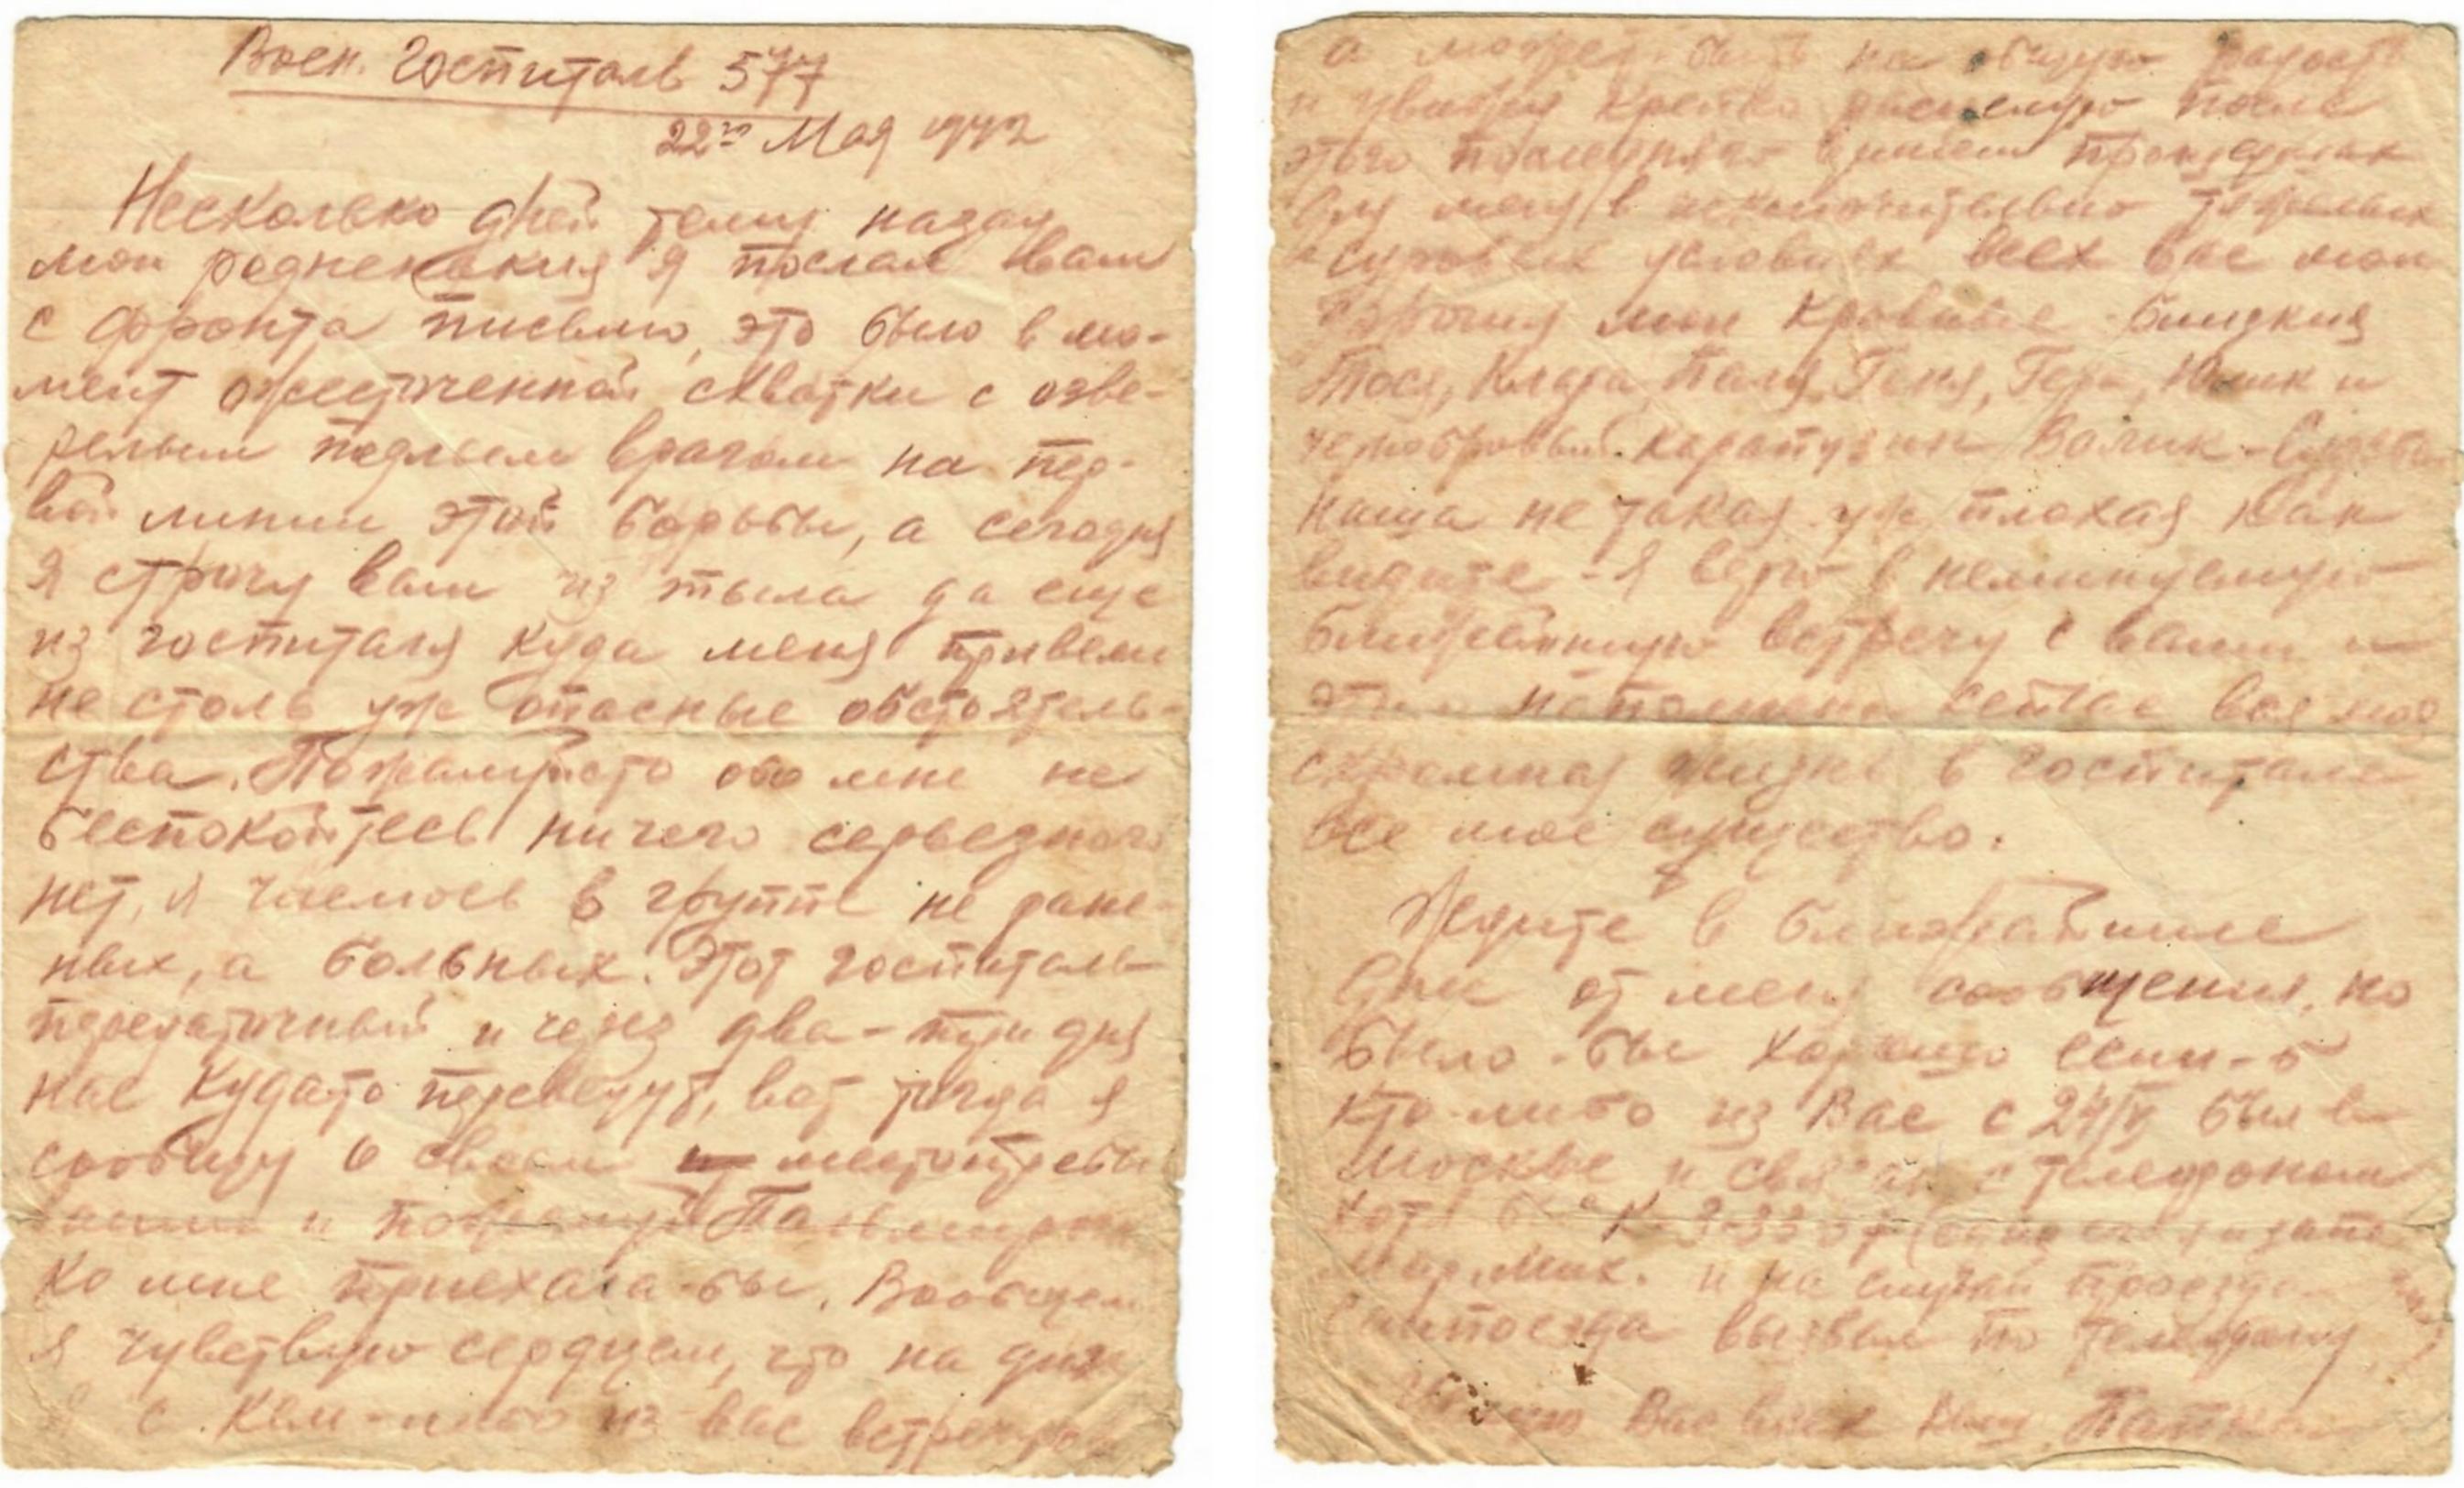 Воен. Госпиталь 577
22го Мая 1942
Несколько дней тому назад
мои родненькия я послал вам
с фронта письмо, это было в мо-
мент ожесточенной схватки с озве-
релым подлым врагом на пер-
вой линии этой борьбы, а сегодня
я строчу вам из тыла да еще
из госпиталя куда меня привели
не столь уж опасные обстоятель-
ства. Пожалуйсто обо мне не
беспокойтесь ничего серьезного
нет, я числюсь в группе не ране-
ных, а больных. Этот госпиталь
пересыточный и через два-три дня
нас кудато переведут, вот тогда я
сообщу о своем местопребы
вании и пожалуй
ко мне приехала-бы. Вообщем
я чувствую сердцем, что на днях
с кем-либо из вас встречусь
а может быть на общую радость
и увижу крепко расцелую после
этого последняго
для меня в исключительно тяжелых
и суровых условиях всех вас мои
дорогия мои кровные близкия
Тося, Клара, Таля, Геня, Гера, Юлик и
чернобровый карапузик Валик - Судьба
наша не такая уж плохая как
видите - я верю в неминуемую
ближайшую встречу с вами и
этим наполнена сейчас вся моя
скромная жизнь в госпитале
все мое существо.
Ждите в ближайшие
дни от меня сообщения, но
было-бы хорошо если-б
кто либо из Вас с 24/V был в
Москве и связан с телефоном
хотя бы
и на случай проезда
санпоезда вызвал по телефону
Целую Вас всех Ваш